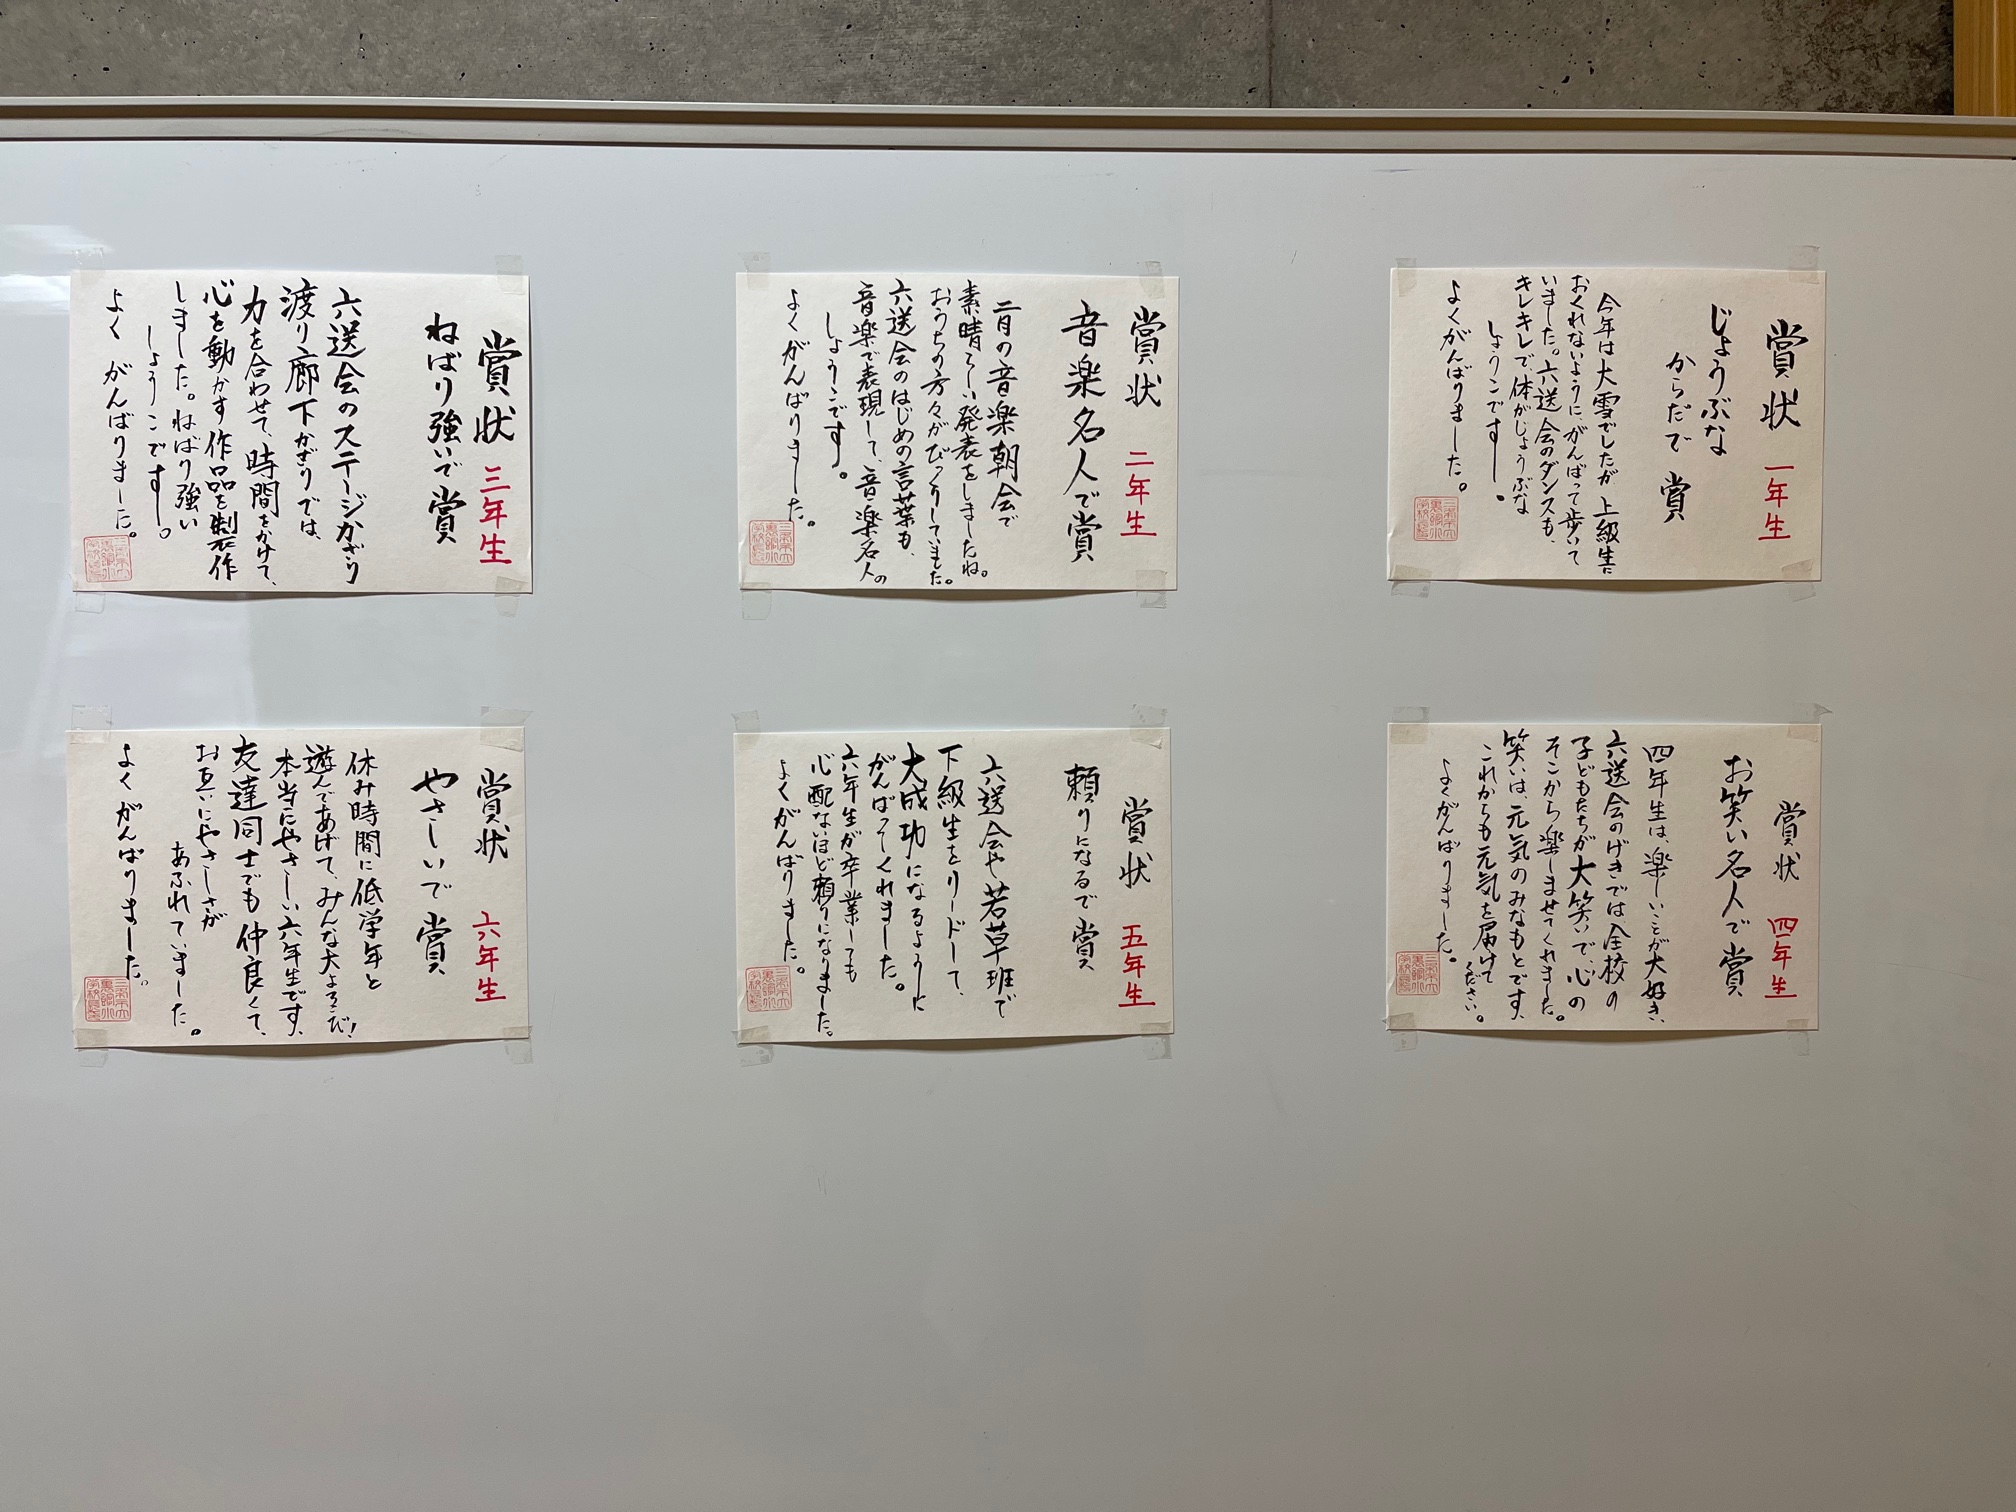 賞状 一年生
じょうぶな
からだで賞
今年は大雪でしたが、上級生に
おくれないようにがんばって歩いて
いました。六送会のダンスも、
キレキレで、体がじょうぶな
しょうこです。
よくがんばりました。
賞状 二年生
音楽名人で賞
二月の音楽朝会で
素晴らしい発表をしましたね。
おうちの方々がびっくりしていました。
六送会のはじめの言葉も、
音楽で表現して、音楽名人の
しょうこです。
よくがんばりました。
賞状 三年生
ねばり強いで賞
六送会のステージかざり
渡り廊下かざりでは、
力を合わせて、時間をかけて、
心を動かす作品を制作
しました。ねばり強い
しょうこです。
よくがんばりました。
賞状 四年生
お笑い名人で賞
四年生は、楽しいことが大好き、
六送会のげきでは、全校の
子どもたちが大笑いで、心の
そこから楽しませてくれました。
笑いは、元気のみなもとです、
これからも元気を届けて
ください。
よくがんばりました。
賞状 五年生
頼りになるで賞
六送会や若草班で
下級生をリードして、
大成功になるように
がんばってくれました。
六年生が卒業しても
心配ないほど頼りになりました。
よくがんばりました。
賞状 六年生
やさしいで賞
休み時間に低学年と
遊んであげて、みんな大よろこび!
本当にやさしい六年生です、
友達同士でも仲良くて、
お互いにやさしさが
あふれていました。
よくがんばりました。